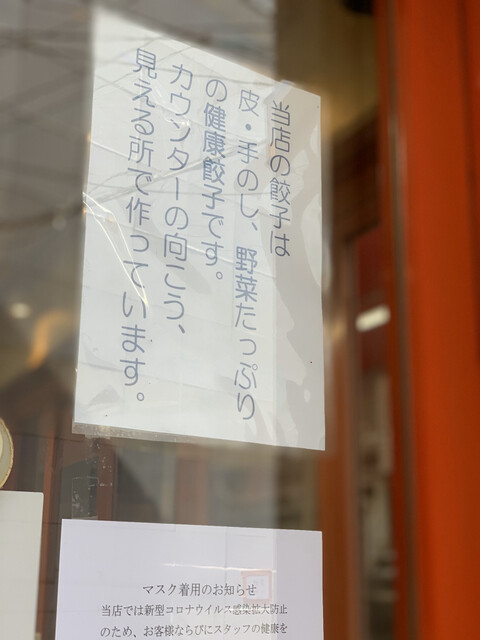 当店の餃子は
皮・手のし、野菜たっぷり
の健康餃子です。
カウンターの向こう、
見える所で作っています。
マスク着用のお知らせ
当店では新型コロナウイルス感染拡大防止
のため、お客様ならびにスタッフの健康を